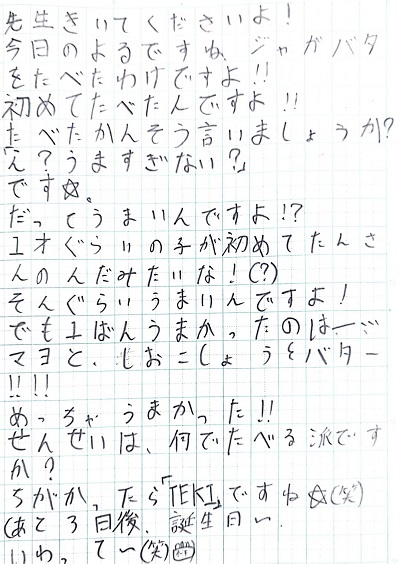 先生きいてくださいよ!
今日のよるですね、ジャガバタ
をたべたわけですよ!!
初めてたべたんですよ!!
たべたかんそう言いましょうか?
「え?うますぎない?」
です☆。
だってうまいんですよ!?
1才ぐらいの子が初めてたんさ
んのんだみたいな!(?)
そんぐらいうまいんですよ!
でも1ばんうまかったのは―…
マヨと、しおこしょうとバター
!!!!
めっちゃうまかった!!
せんせいは、何でたべる派です
か?
ちがかったら「TEKI」ですね☆(笑)
(あと3日後、誕生日～.
いわって～(笑)